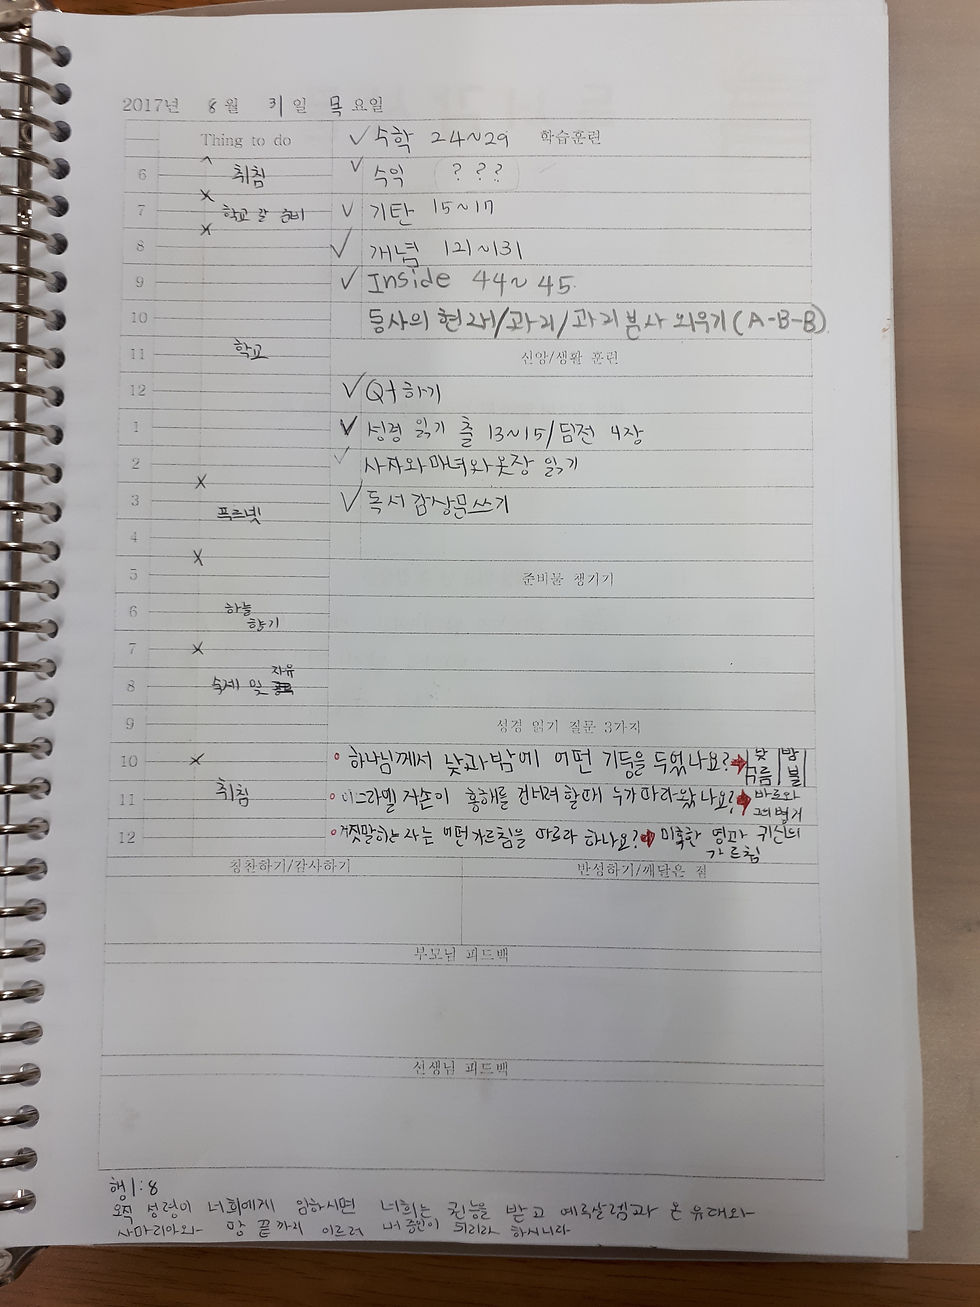 2017년 8월 31일 목요일
Thing to do
✓ 수학 24~29 학습훈련
6 취침
✓ 수익 ? ? ?
7 학교 갈 준비
✓ 기탄 15~17
8
✓ 개념 121~131
9
✓ Inside 44~45
10
동사의 현재/과거/과거분사 외우기(A-B-B)
11 학교
신앙/생활 훈련
12
✓ Qt 하기
1
✓ 성경 읽기 출 13~15/딤전 4장
2
✓ 사자와 마녀와 옷장 읽기
3 푸르넷
✓ 독서 감상문 쓰기
4
5
준비물 챙기기
6 하늘
향기
7
8 숙제 및 자유
9
성경 읽기 질문 3가지
10
하나님께서 낮과 밤에 어떤 기둥을 두었나요? → 낮 밤
구름 불
11 취침
이스라엘 자손이 홍해를 건너려 할때 누가 따라왔나요? → 바로와
그의 병거
12
거짓말하는 자는 어떤 가르침을 따르라 하나요? → 미혹한 영과 귀신의
가르침
칭찬하기/감사하기 반성하기/깨달은 점
부모님 피드백
선생님 피드백
행 1:8
오직 성령이 너희에게 임하시면 너희는 권능을 받고 예루살렘과 온 유대와
사마리아와 땅 끝까지 이르러 내 증인이 되리라 하시니라